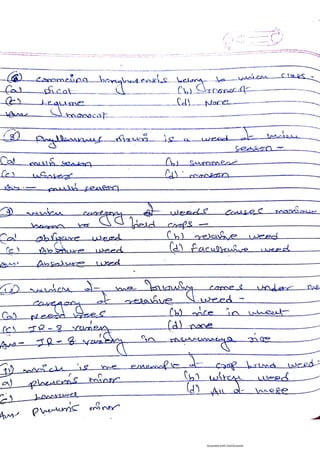 commelina benghalensis belong to which class -
(a) Dicot (b) Monocot
(c) Legume (d) None
Ans - monocot
(8) Phyllanthus niruri is a weed of which
season -
(a) multi season (b) summer
(c) winter (d) monsoon
Ans - multi season
(9) which category of weeds causes maximum
harm to field crops -
(a) obligate weed (b) relative weed
(c) Absolute weed (d) facultative weed
Ans. Absolute weed
(10) which of the following comes under the
category of relative weed -
(a) Neem trees (b) rice in wheat
(c) IR-8 variety (d) none
Ans - IR-8 variety in rice
(11) which is the example of crop bound weed -
a) phalaris minor (b) witch weed
(d) All of these
Ans phalaris minor
Scanned with CamScanner